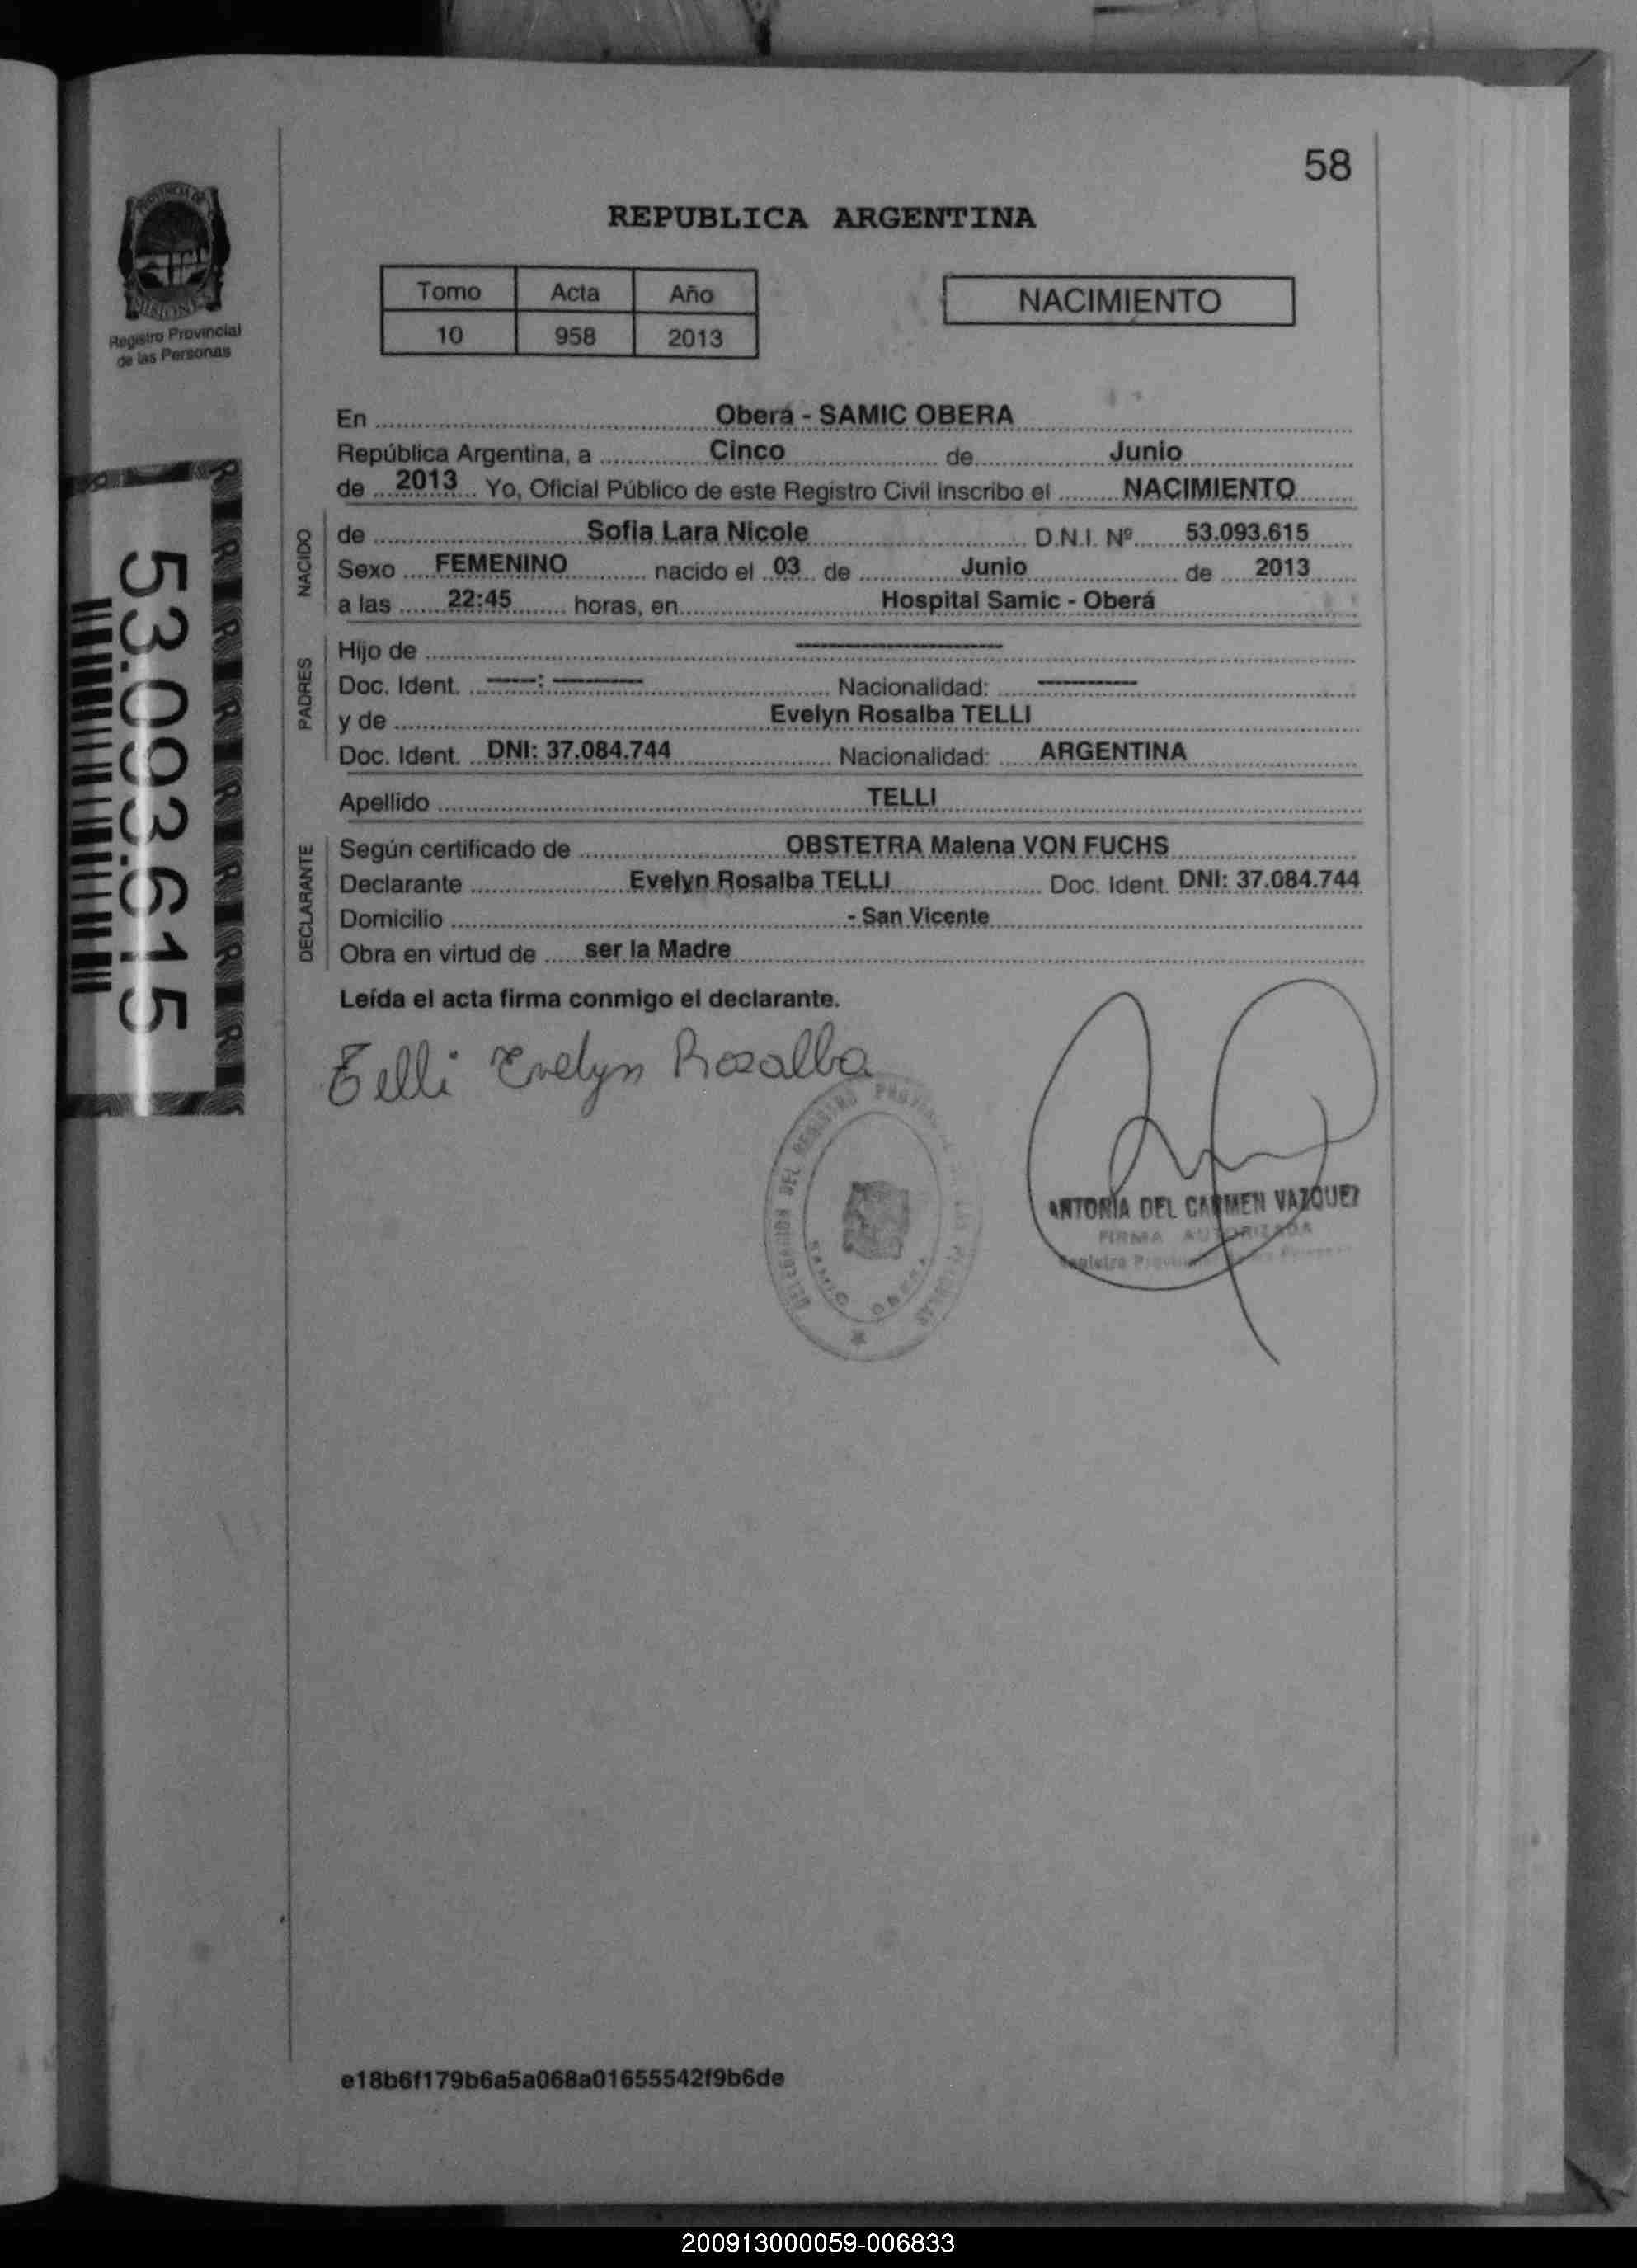 58
REPUBLICA ARGENTINA
PROVINCIA DE
MISIONES
Registro Provincial
de las Personas
Tomo Acta Año
10 958 2013
NACIMIENTO
En Oberá - SAMIC OBERA
República Argentina, a Cinco de Junio
de 2013 Yo, Oficial Público de este Registro Civil inscribo el NACIMIENTO
NACIDO
de Sofia Lara Nicole D.N.I. Nº 53.093.615
Sexo FEMENINO nacido el 03 de Junio de 2013
a las 22:45 horas, en Hospital Samic - Oberá
PADRES
Hijo de
Doc. Ident. : Nacionalidad:
y de Evelyn Rosalba TELLI
Doc. Ident. DNI: 37.084.744 Nacionalidad: ARGENTINA
Apellido TELLI
DECLARANTE
Según certificado de OBSTETRA Malena VON FUCHS
Declarante Evelyn Rosalba TELLI Doc. Ident. DNI: 37.084.744
Domicilio - San Vicente
Obra en virtud de ser la Madre
Leída el acta firma conmigo el declarante.
53.093.615
Telli Evelyn Rosalba
DELEGACION DEL REGISTRO
SAMIC OBERA
ANTONIA DEL CARMEN VAZQUEZ
FIRMA AUTORIZADA
e18b6f179b6a5a068a01655542f9b6de
200913000059-006833